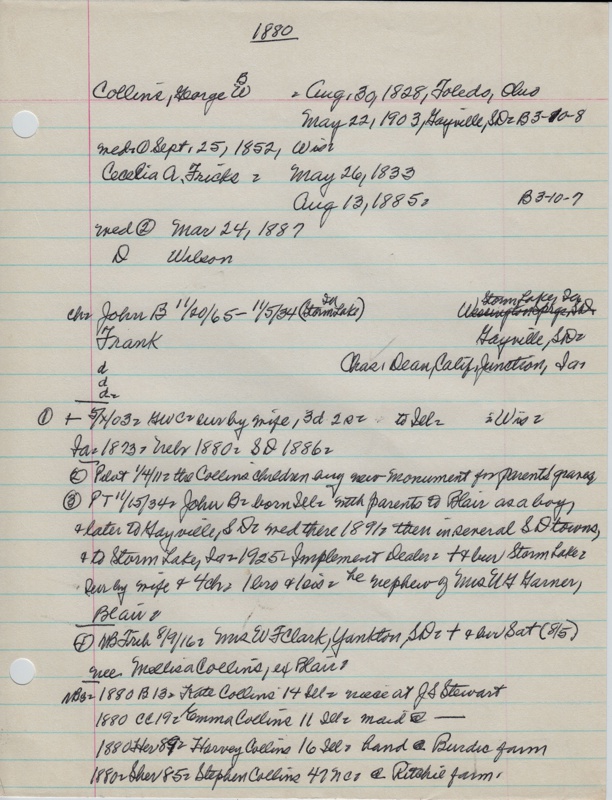 1880
Collins, George B W = Aug. 30, 1828, Toledo, Ohio
May 22, 1903, Gayville, SD= B3-10-8
med= ① Sept. 25, 1852, Wis=
Cecelia A. Fricks = May 26, 1833
Aug 13, 1885= B3-10-7
med ② Mar 24, 1887
D Wilson
ch= John B 11/20/65 - 11/5/34 (Storm Lake Ia) Storm Lake, Ia
Frank Gayville, SD=
d Chas. Dean, Calif. Junction, Ia=
d
d=
① + 5/ /03= GWC= sur by wife, 3d 2s= to Ill= = Wis=
Ia= 1873= Nebr 1880= SD 1886=
② Pilot 1/4/11= the Collins children buy new monument for parents graves
③ PT 11/15/34= John B= born Ill= with parents to Blair as a boy,
& later to Gayville, SD= med there 1891= then in several SD towns,
& to Storm Lake, Ia= 1925= Implement Dealer= + & bur Storm Lake=
Sur by wife & 4ch= 1bro & 1sis= he nephew of Mrs WG Garner,
Blair=
④ NB Trib 8/9/16= Mrs W F Clark, Yankton, SD= + & bur Sat (8/5)
nee Mellisa Collins, ex Blair=
NB= 1880 B 13= Kate Collins 14 Ill= niece at JS Stewart
1880 CC 19= Emma Collins 11 Ill= maid @ —
1880 Her 89= Harvey Collins 16 Ill= hand @ Burdic farm
1880= Sher 85= Stephen Collins 47 NC= @ Ritchie farm.